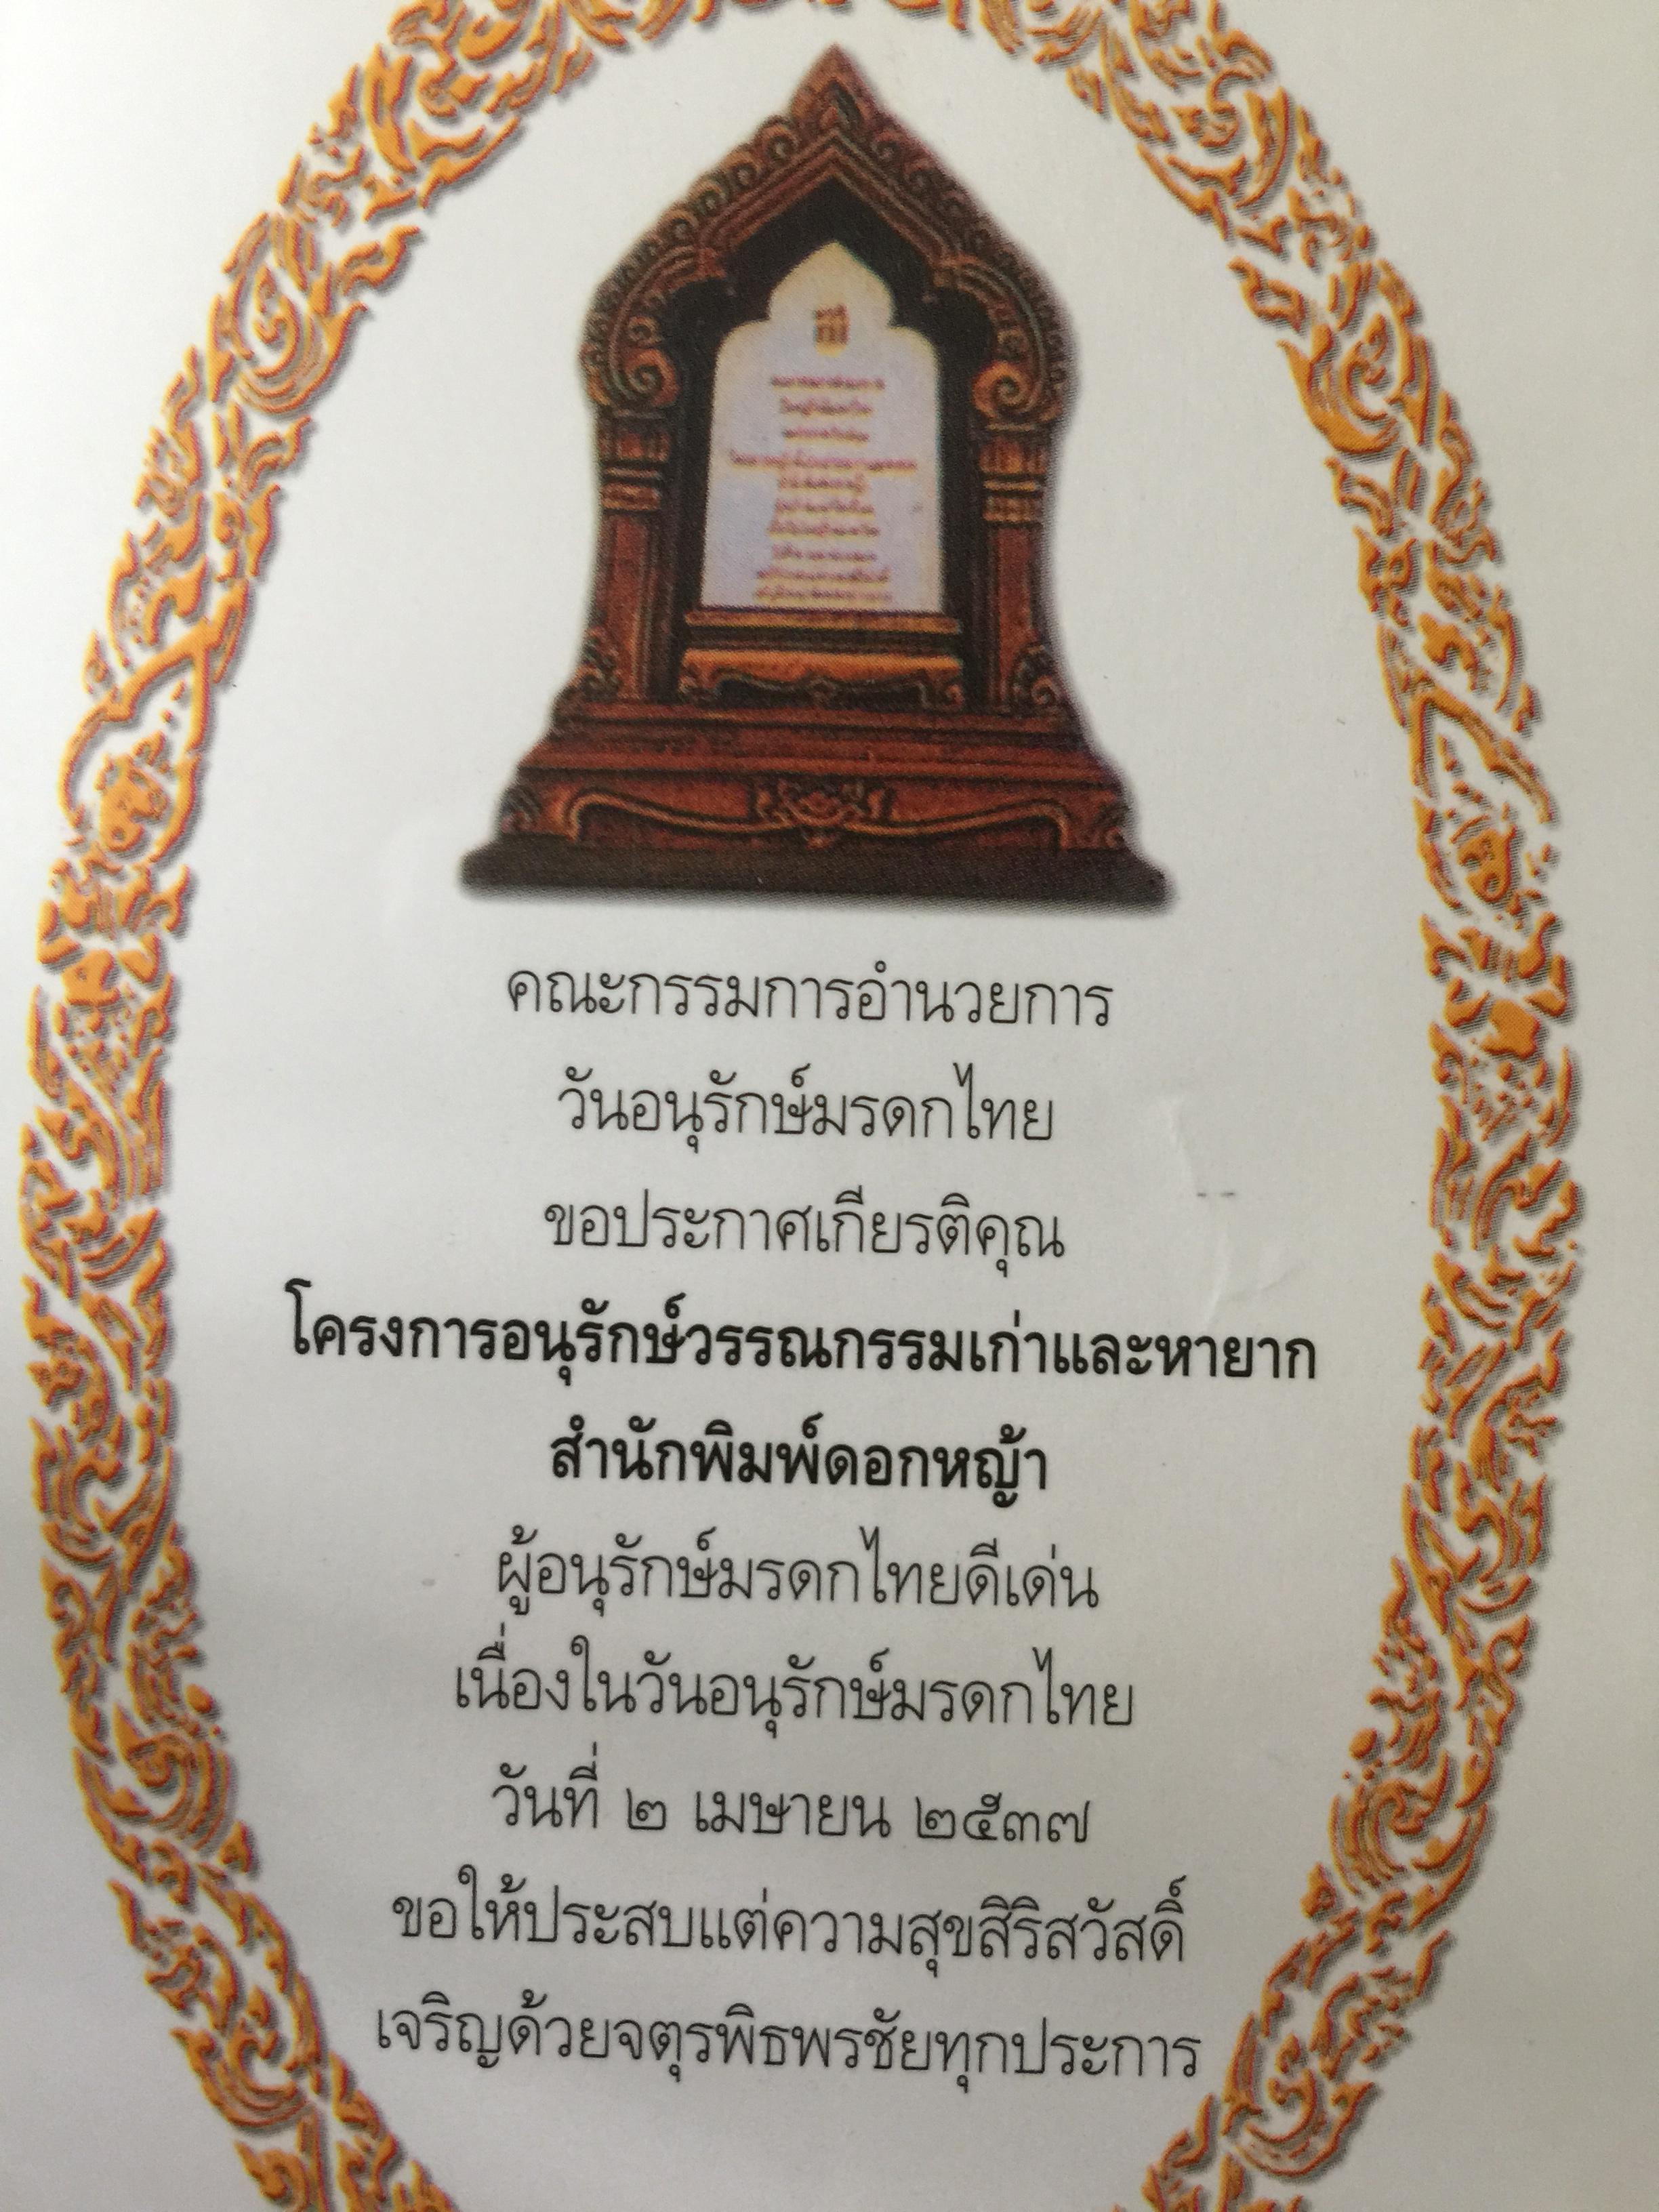 คณะกรรมการอำนวยการ
วันอนุรักษ์มรดกไทย
ขอประกาศเกียรติคุณ
โครงการอนุรักษ์วรรณกรรมเก่าและหายาก
สำนักพิมพ์ดอกหญ้า
ผู้อนุรักษ์มรดกไทยดีเด่น
เนื่องในวันอนุรักษ์มรดกไทย
วันที่ ๒ เมษายน ๒๕๓๗
ขอให้ประสบแต่ความสุขสิริสวัสดิ์
เจริญด้วยจตุรพิธพรชัยทุกประการ